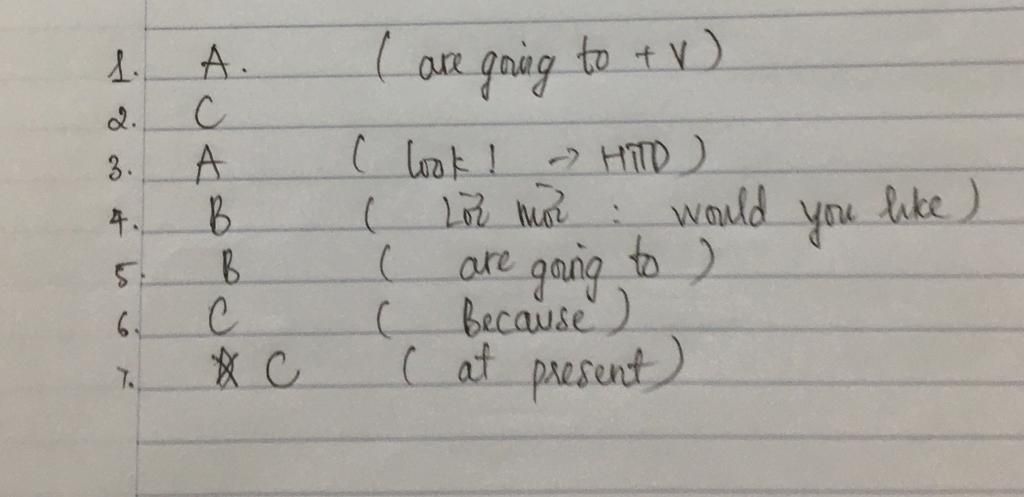 1. A. (are going to + V)
2. C
3. A (look! → HTTD)
4. B (Lời mời : would you like)
5. B (are going to)
6. C (Because)
7. C (at present)